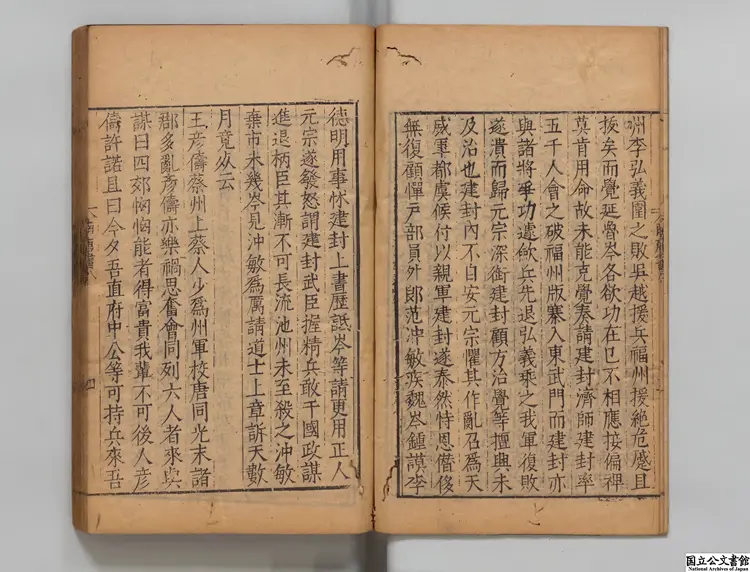 州李弘義圍之敗吳越援兵福州援絶危蹙且
拔矣而覺延魯岑各欲功在已不相應接偏裨
莫肯用命故未能克覺奏請建封濟師建封率
五千人會之破福州版寨入東武門而建封亦
與諸將爭功遽歛兵先退弘義乘之我軍復敗
遂潰而歸元宗深銜建封顧方治覺等擅興未
及治也建封內不自安元宗懼其作亂召爲天
威軍都虞候付以親軍建封遂泰然恃恩僭侈
無復顧憚戸部員外郎范沖敏疾魏岑鍾謨李
德明用事怵建封上書歴詆岑等請更用正人
元宗遂發怒謂建封武臣握精兵敢干國政謀
進退柄臣其漸不可長流池州未至殺之沖敏
棄市未幾岑見沖敏爲厲請道士上章訴天數
月竟死云
王彦儔蔡州上蔡人少爲州軍校唐同光末諸
郡多亂彦儔亦樂禍思奮會同列六人者來與
謀曰四郊恟恟能者得富貴我輩不可後人彦
儔許諾且曰今夕吾直府中公等可持兵來吾
南唐書八
四
国立公文書館
National Archives of Japan